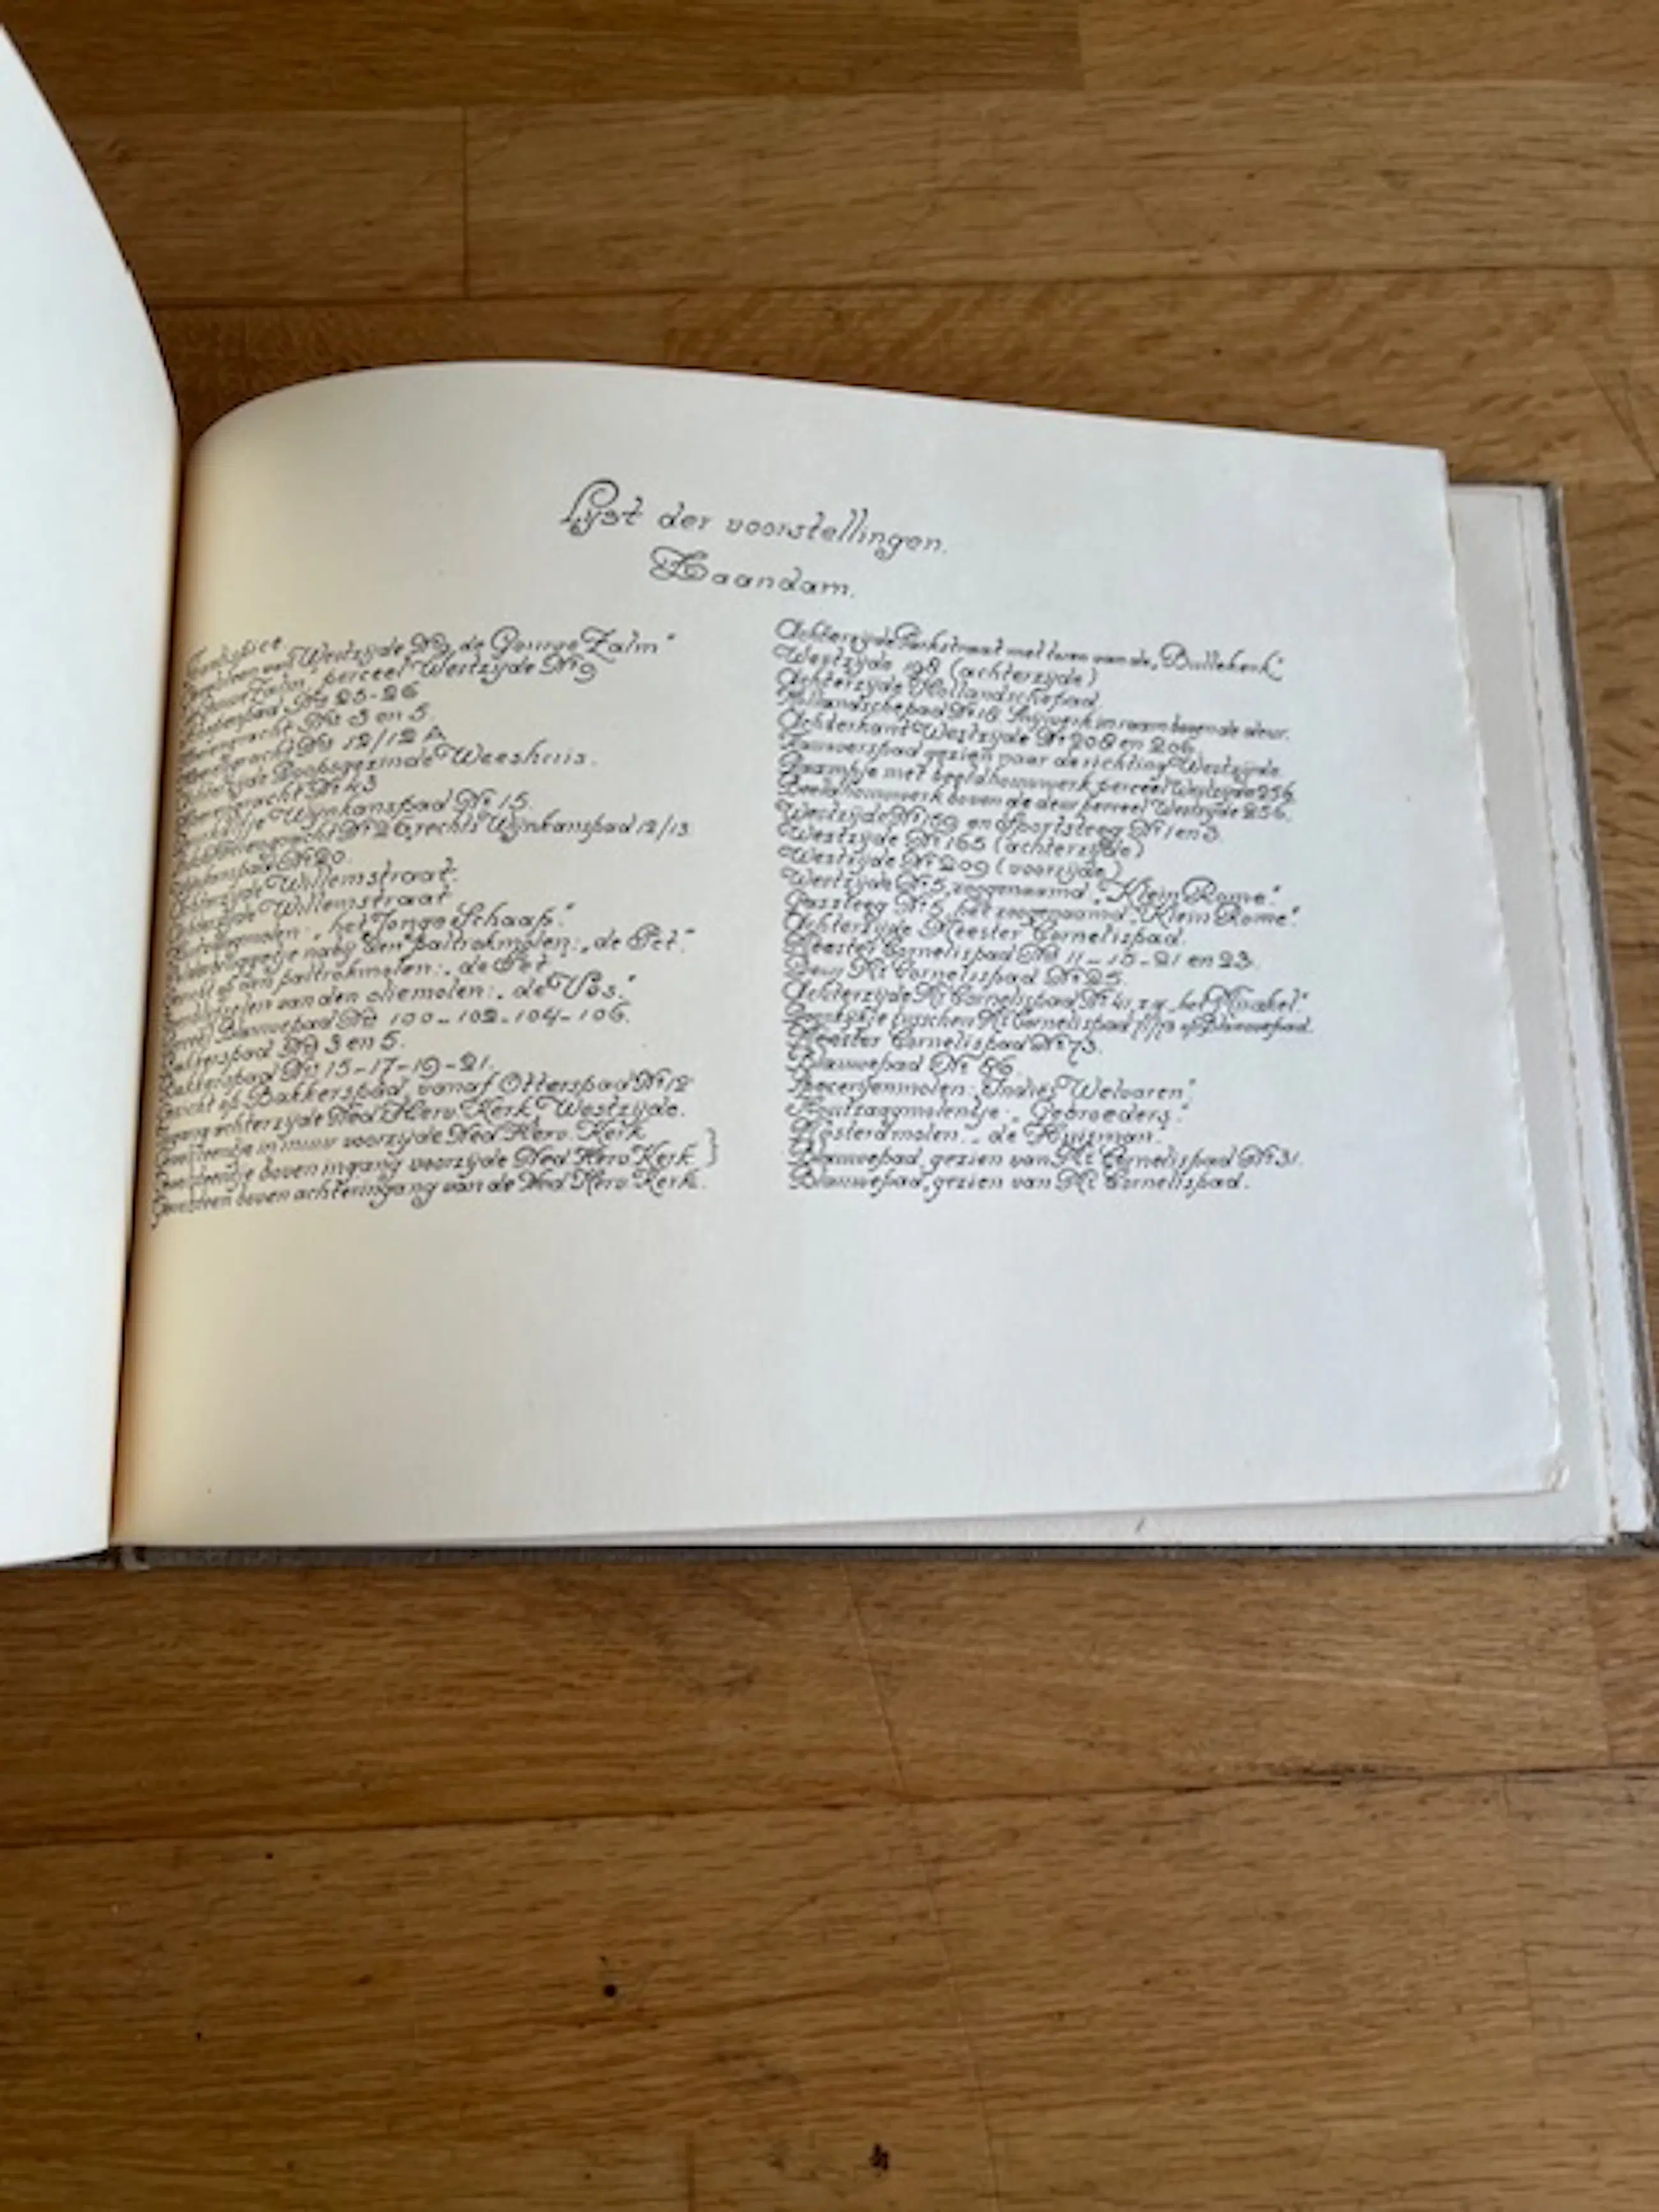 Lyst der voorstellingen.
Zaandam.
Westzijde No 9, de Gouwe Zalm"
Zalm", perceel Westzijde No 9
Nos 25-26
Nos 3 en 5.
Nos 12/12 A
Doopsgezinde Weeshuis.
No 43
Wijnkanspad No 15.
No 26, rechts Wijnkanspad 12/13.
No 20.
Achterzijde Willemstraat.
Achterzijde Willemstraat
molen: „het Jonge Schaap."
naby den paltrokmolen: „de Pet."
op den paltrokmolen: „de Pet
van den oliemolen: „de Vos."
Blauwepad Nos 100-102-104-106.
Bakkerspad Nos 3 en 5.
Bakkerspad Nos 15-17-19-21.
Gezicht op Bakkerspad, vanaf Otterspad No 12
Ingang achterzijde Ned. Herv. Kerk, Westzijde.
in muur voorzijde Ned. Herv. Kerk
boven ingang voorzijde Ned. Herv. Kerk.
boven achteringang van de Ned. Herv. Kerk.
Achterzijde Parkstraat met toren van de „Bullekerk."
Westzijde 198 (achterzijde)
Achterzijde Hollandschepad.
Hollandschepad No 18. Snijwerk in raam boven de deur.
Achterkant Westzijde No 208 en 206.
gezien naar de richting Westzijde.
Raampje met beeldhouwwerk perceel Westzijde 256.
Beeldhouwwerk boven de deur perceel Westzijde 256.
Westzijde No 169 en Poortsteeg No 1 en 3.
Westzijde No 165 (achterzijde)
Westzijde No 209 (voorzijde)
Westzijde No 5, zoogenaamd „Klein Rome."
Gassteeg No 5, het zoogenaamd „Klein Rome".
Achterzijde Meester Cornelispad.
Meester Cornelispad Nos 11-15-21 en 23.
Deur Mr Cornelispad No 25.
Achterzijde Mr Cornelispad No 41, z.g. „het Mirakel."
Doorkijkje tusschen Mr Cornelispad op Blauwepad.
Meester Cornelispad No 73.
Blauwepad No 86.
Specerijenmolen: „Indies Welvaren".
Houtzaagmolentje: „Gebroeders."
Mosterdmolen: „de Huisman."
Blauwepad, gezien van Mr Cornelispad No 31.
Blauwepad, gezien van Mr Cornelispad.